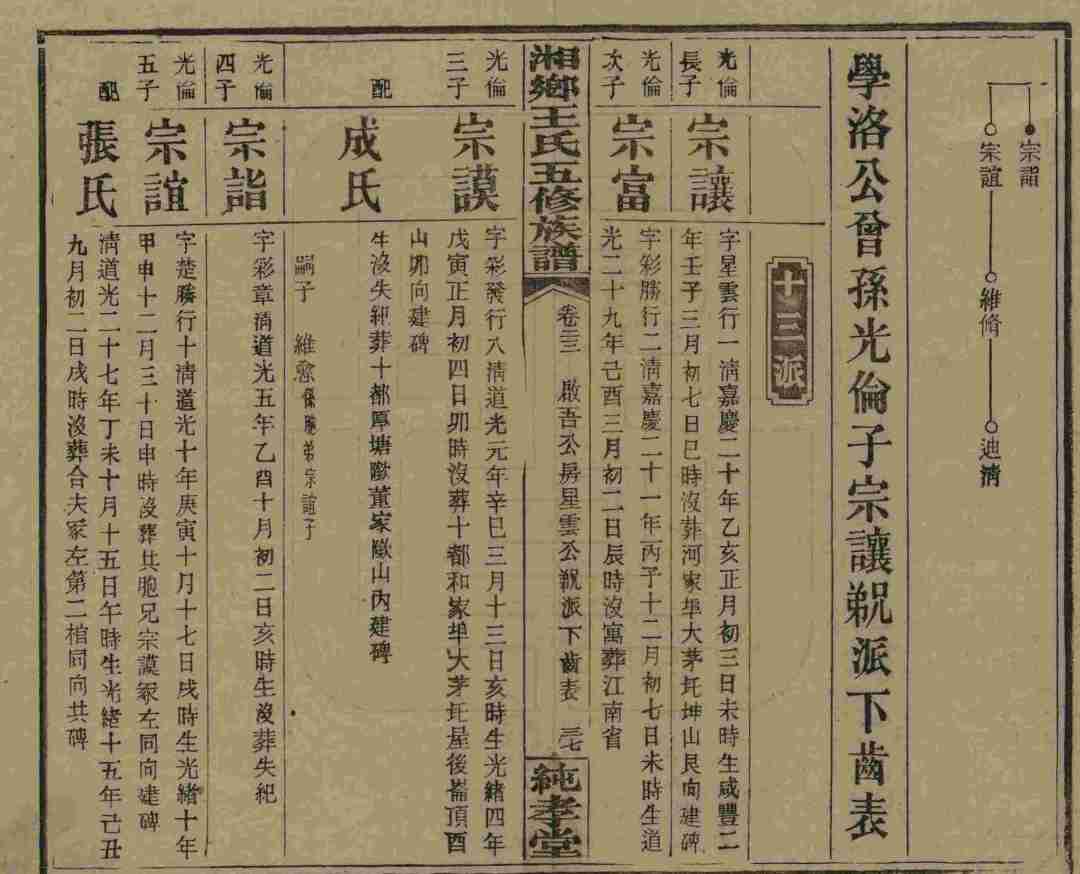 宗詣
宗誼 維脩 迪清
學洛公曾孫光倫子宗讓覜派下齒表
十三派
光倫長子
宗讓
字星雲行一清嘉慶二十年乙亥正月初三日未時生咸豐二
年壬子三月初七日巳時沒葬河家埠大茅圫坤山艮向建碑
光倫次子
宗富
字彩勝行二清嘉慶二十一年丙子十二月初七日未時生道
光二十九年己酉三月初二日辰時沒寓葬江南省
湘鄉王氏五修族譜
卷三三 啟吾公房星雲公覜派下齒表 三七
純孝堂
光倫三子
宗謨
字彩發行八清道光元年辛巳三月十三日亥時生光緒四年
戊寅正月初四日卯時沒葬十都和家埠大茅圫屋後崙頂酉
山卯向建碑
配
成氏
生沒失紀葬十都厚塘𡑞董家𡑞山內建碑
嗣子 維 係胞弟宗誼子
光倫四子
宗詣
字彩章清道光五年乙酉十月初二日亥時生沒葬失紀
光倫五子
宗誼
字楚勝行十清道光十年庚寅十月十七日戌時生光緒十年
甲申十二月三十日申時沒葬共胞兄宗謨冢左同向建碑
配
張氏
清道光二十七年丁未十月十五日午時生光緒十五年己丑
九月初二日戌時沒葬合夫冢左第二棺同向共碑